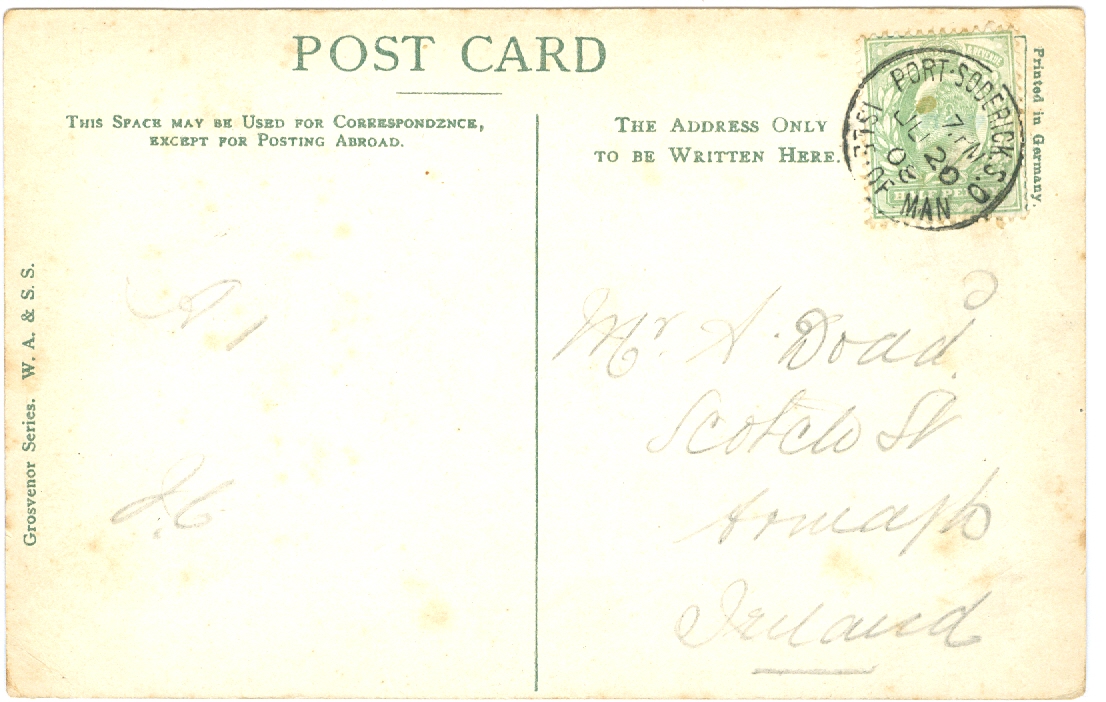 POST CARD
THIS SPACE MAY BE USED FOR CORRESPONDZNCE,
EXCEPT FOR POSTING ABROAD.
THE ADDRESS ONLY
TO BE WRITTEN HERE.
PORT-SODERICK.S.O
7. PM
JL 20
08
ISLE OF MAN
HALF PENNY
Printed in Germany.
Grosvenor Series. W. A. & S. S.
A 1
J.C
Mr A. Dodd
Scotch St
Armagh
Ireland